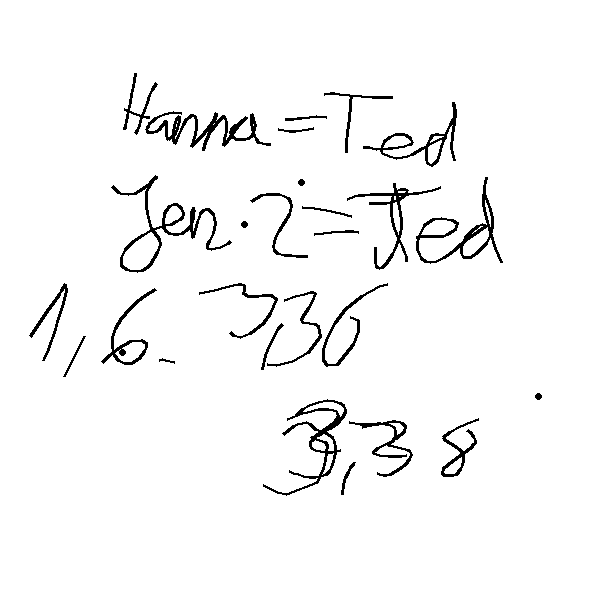 Hanna = Ted
Jen · 2 = Ted
1,6 - 3,36
3,38